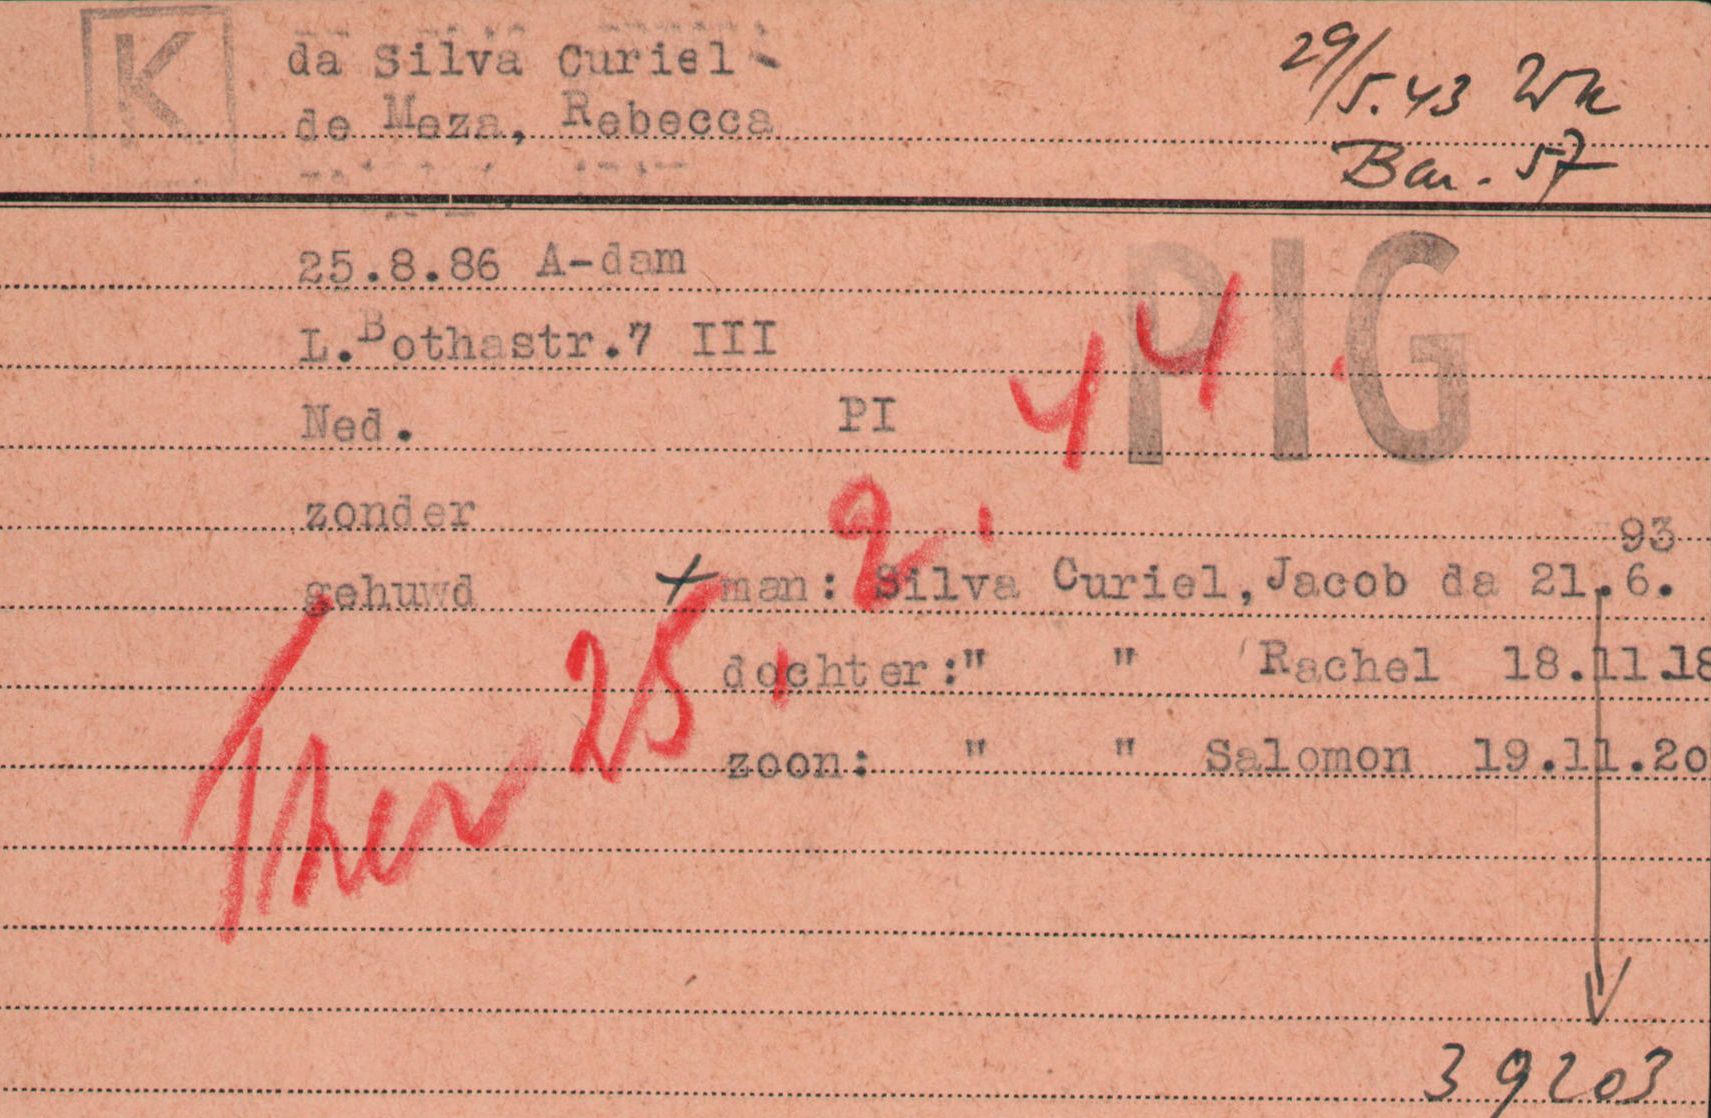 K
da Silva Curiel-
de Meza, Rebecca
29/5.43 Wk
Bar. 57
25.8.86 A-dam
PIG
L.Bothastr.7 III
Ned. PI
zonder
93
gehuwd + man: Silva Curiel,Jacob da 21.6.
dochter:" " Rachel 18.11.18
zoon: " " Salomon 19.11.20
Ther 25.2.44.
39203